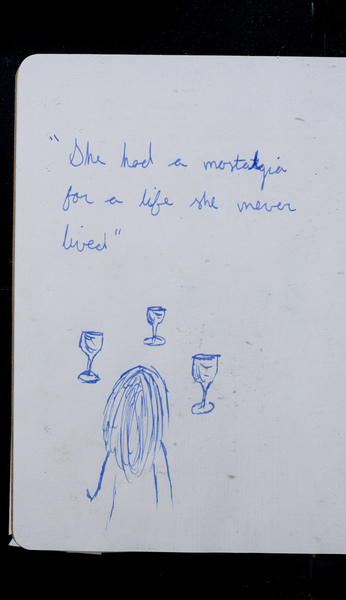 "She had a nostalgia
for a life she never
lived"